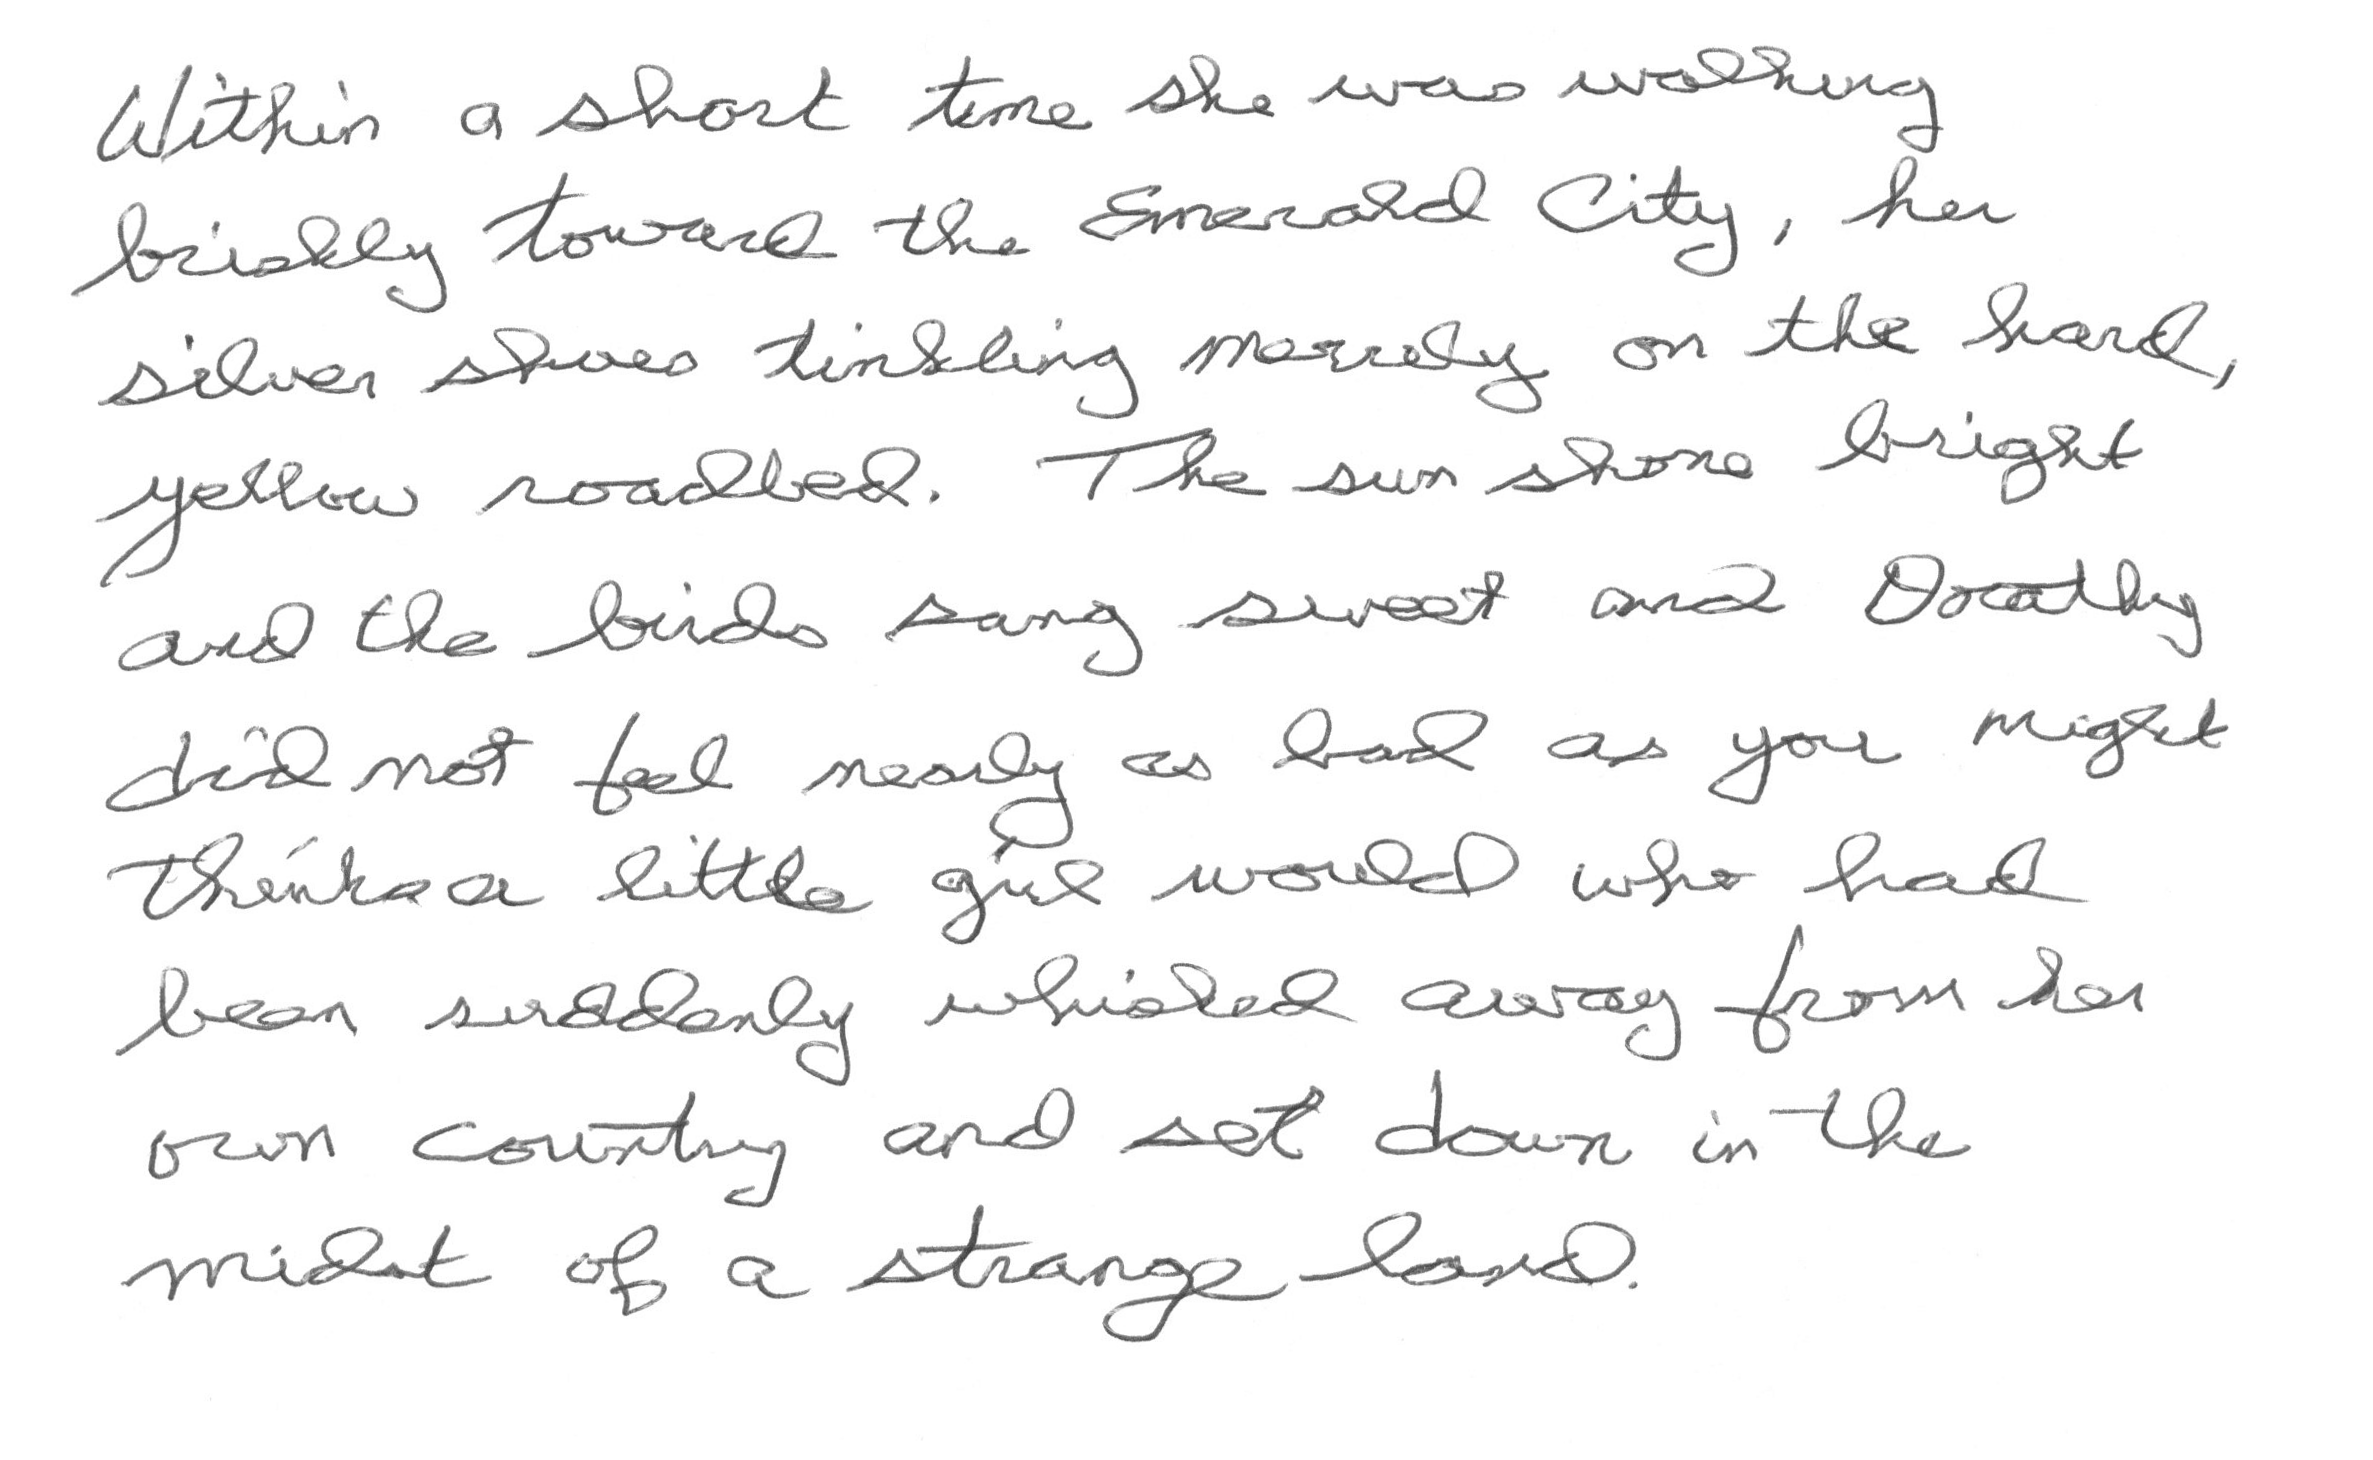 Within a short time she was walking
briskly toward the Emerald City, her
silver shoes tinkling merrily on the hard,
yellow roadbed. The sun shone bright
and the birds sang sweet and Dorothy
did not feel nearly as bad as you might
think a little girl would who had
been suddenly whisked away from her
own country and set down in the
midst of a strange land.